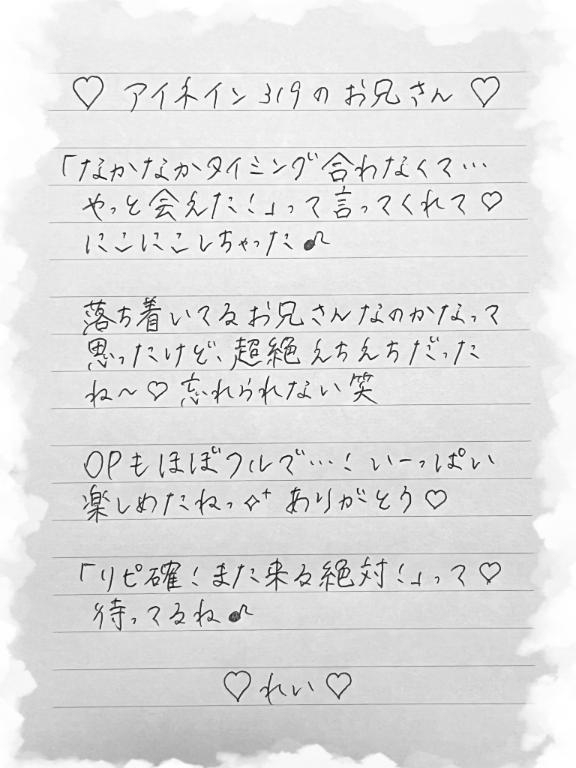 ♡ アイネイン 319の お兄さん ♡
「なかなかタイミング合わなくて…
やっと会えた！」って言ってくれて♡
にこにこしちゃった♪
落ち着いてるお兄さんなのかなって
思ったけど、超絶えちえちだった
ね〜♡ 忘れられない笑
OPもほぼフルで…！いーっぱい
楽しめたねっ✧⁺ ありがとう♡
「リピ確！また来る絶対！」って♡
待ってるね♪
♡れい♡